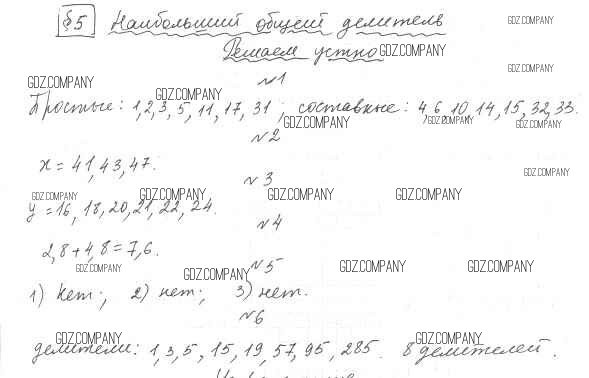 §5 Наибольший общей делитель
Решаем устно GDZ.COMPANY
GDZ.COMPANY
GDZ.COMPANY
№1
GDZ.COMPANY
GDZ.COMPANY
Простые: 1,2,3,5,11,17,31; составные: 4,6,10,14,15,32,33.
GDZ.COMPANY
GDZ.COMPANY
GDZ.COMPANY
№2
x = 41,43,47.
GDZ.COMPANY
№3
GDZ.COMPANY
GDZ.COMPANY
GDZ.COMPANY
GDZ.COMPANY
y = 16, 18, 20, 21, 22, 24.
№4
2,8 + 4,8 = 7,6.
GDZ.COMPANY
GDZ.COMPANY
№5
GDZ.COMPANY
GDZ.COMPANY
1) нет; 2) нет; 3) нет.
№6
GDZ.COMPANY
GDZ.COMPANY
делители: 1,3,5, 15, 19, 57, 95, 285. 8 делителей.